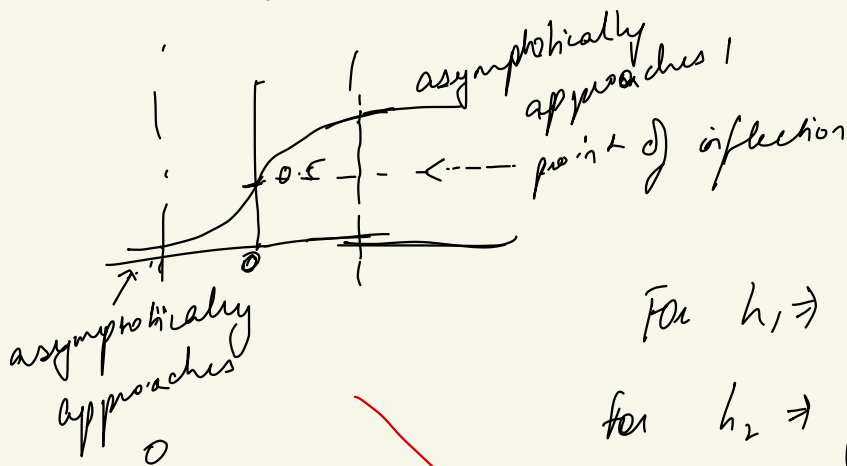 asymptotically
approaches 1
0.5
point of inflection
0
asymptotically
approaches
0
For h₁ ⇒
for h₂ ⇒